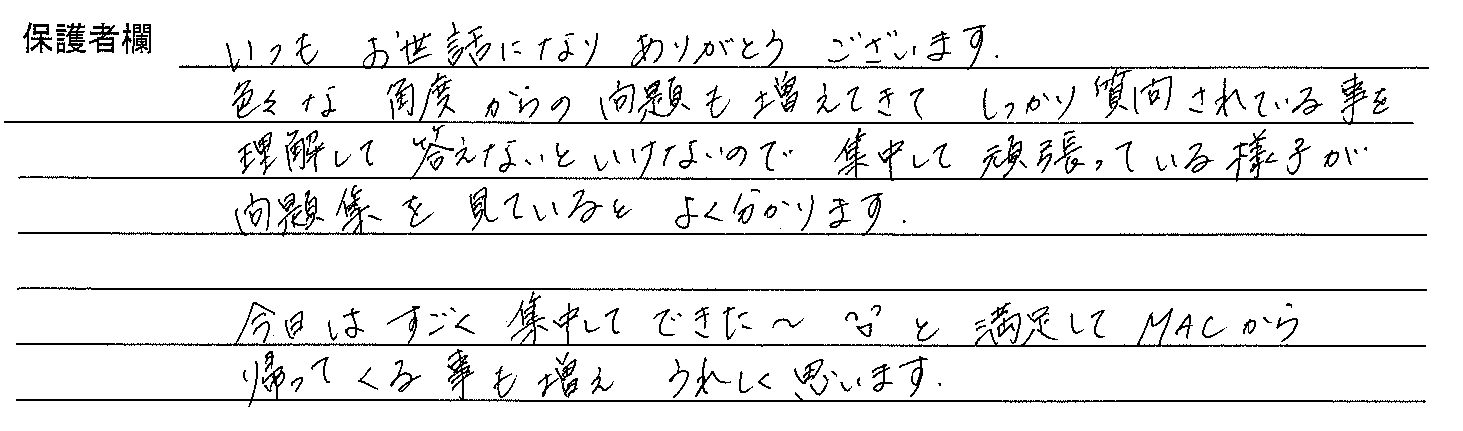 保護者欄 いつも お世話になり ありがとう ございます.
色々な 角度 からの 問題も 増えてきて しっかり 質問されている事を
理解して 答えないといけないので 集中して 頑張っている様子が
問題集を 見ていると よく分かります.
今日は すごく 集中して できた〜 と 満足して MACから
帰ってくる 事も 増え うれしく 思います.